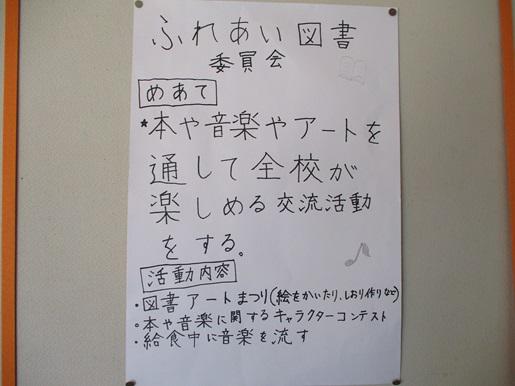 ふれあい図書
委員会
めあて
★本や音楽やアートを
通して全校が
楽しめる交流活動
をする。
活動内容
・図書アートまつり(絵をかいたり、しおり作りなど)
・本や音楽に関するキャラクターコンテスト
・給食中に音楽を流す